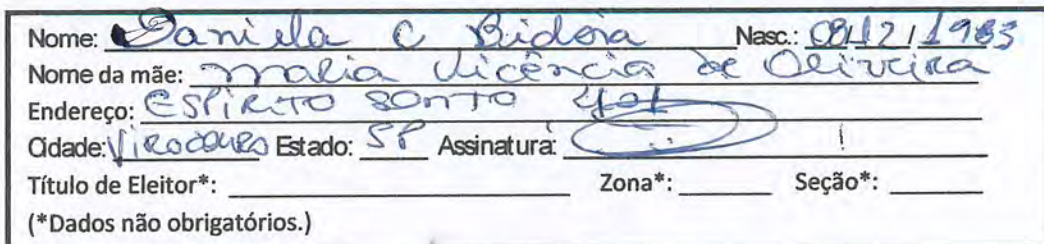 Nome: Daniela C Bidoia Nasc.: 08/12/1983
Nome da mãe: Maria Vicência de Oliveira
Endereço: ESPÍRITO SONTO 401
Cidade: VIRADOURO Estado: SP Assinatura:
Título de Eleitor*: Zona*: Seção*:
(*Dados não obrigatórios.)